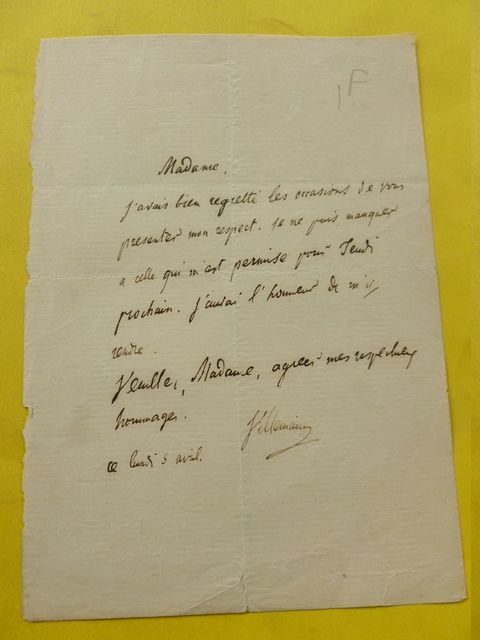 1F
Madame,
j'avais bien regretté les occasions de vous
presenter mon respect. Je ne puis manquer
a celle qui m'est permise pour Jeudi
prochain. j'aurai l'honneur de m'y
rendre.
Veuillez, Madame, agréer mes respectueux
hommages.
Villemain
ce lundi 5 avril.